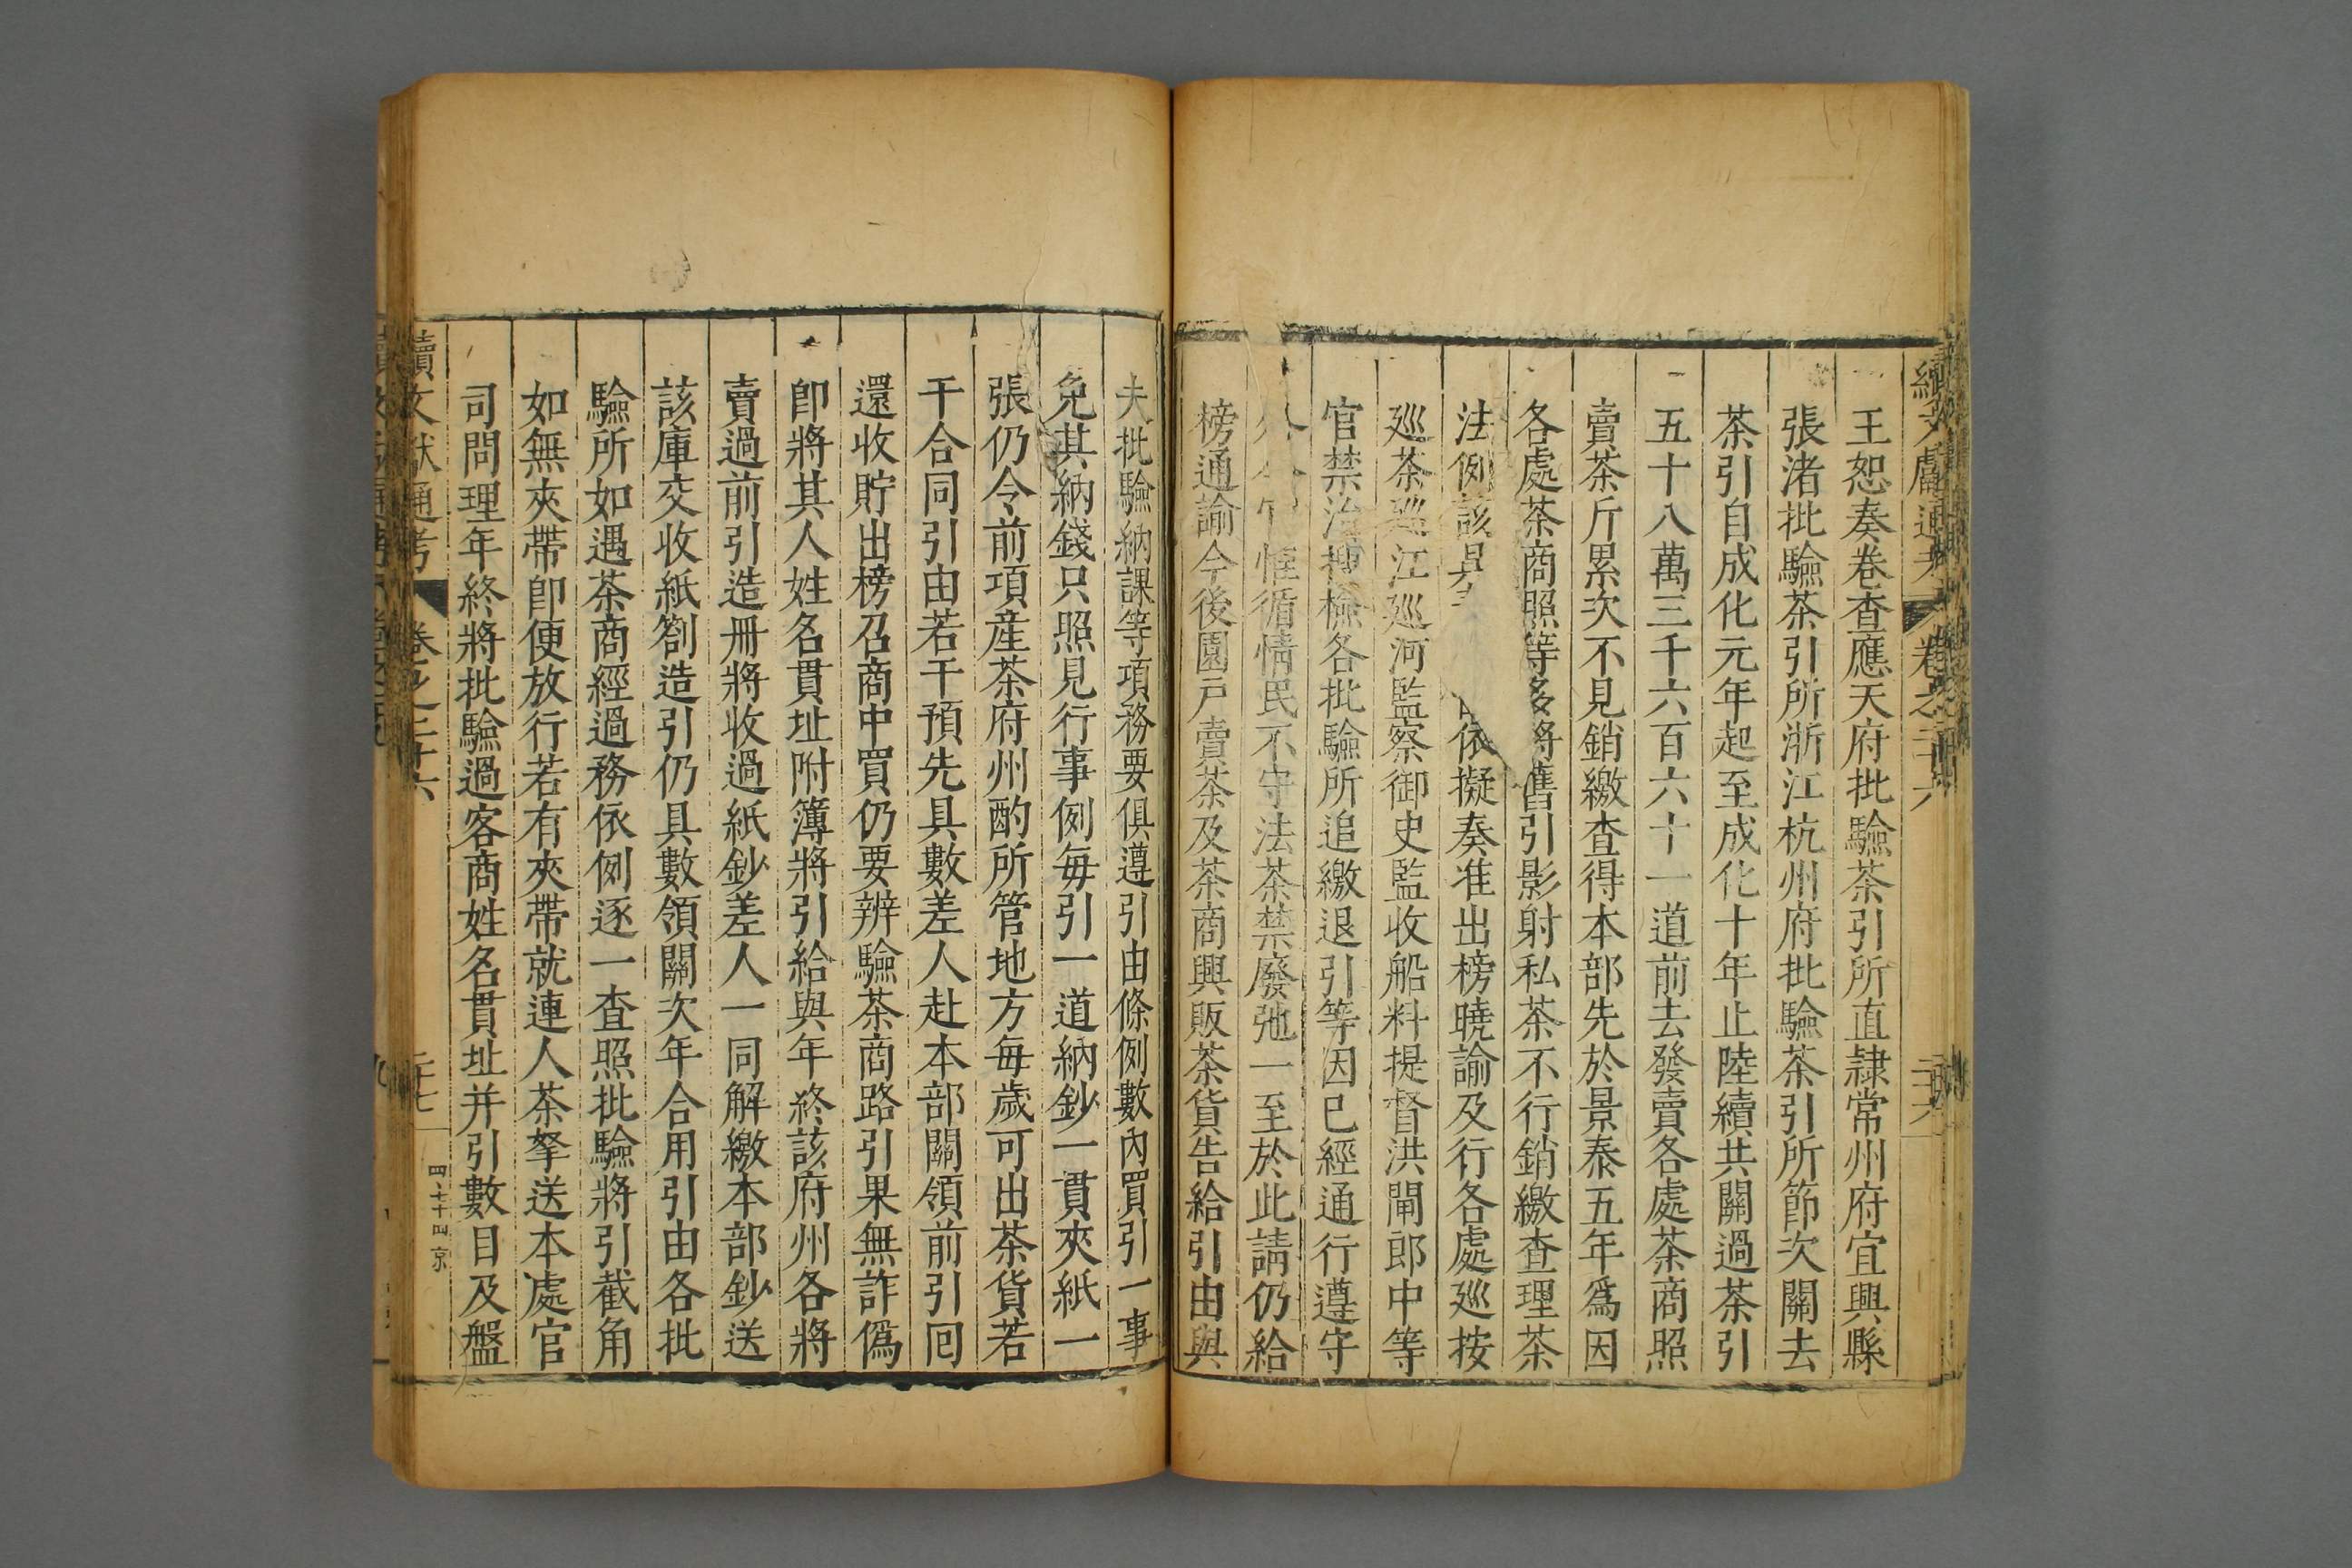 續文獻通考 卷之二十六
王恕奏卷查應天府批驗茶引所直隷常州府宜興縣
張渚批驗茶引所浙江杭州府批驗茶引所節次關去
茶引自成化元年起至成化十年止陸續共關過茶引
五十八萬三千六百六十一道前去發賣各處茶商照
賣茶斤累次不見銷繳查得本部先於景泰五年爲因
各處茶商照等多將舊引影射私茶不行銷繳查理茶
法例該 依擬奏准出榜曉諭及行各處巡按
巡茶巡江巡河監察御史監收船料提督洪閘郎中等
官禁治搜檢各批驗所追繳退引等因已經通行遵守
循情民不守法茶禁廢弛一至於此請仍給
榜通諭今後園戸賣茶及茶商興販茶貨告給引由與
夫批驗納課等項務要俱遵引由條例數內買引一事
免其納錢只照見行事例每引一道納鈔一貫夾紙一
張仍令前項産茶府州酌所管地方每歲可出茶貨若
干合同引由若干預先具數差人赴本部關領前引囘
還收貯出榜召商中買仍要辨驗茶商路引果無詐僞
卽將其人姓名貫址附簿將引給與年終該府州各將
賣過前引造冊將收過紙鈔差人一同解繳本部鈔送
該庫交收紙劄造引仍具數領關次年合用引由各批
驗所如遇茶商經過務依例逐一查照批驗將引截角
如無夾帶卽便放行若有夾帶就連人茶拏送本處官
司問理年終將批驗過客商姓名貫址并引數目及盤
續文獻通考 卷之二十六 二十七